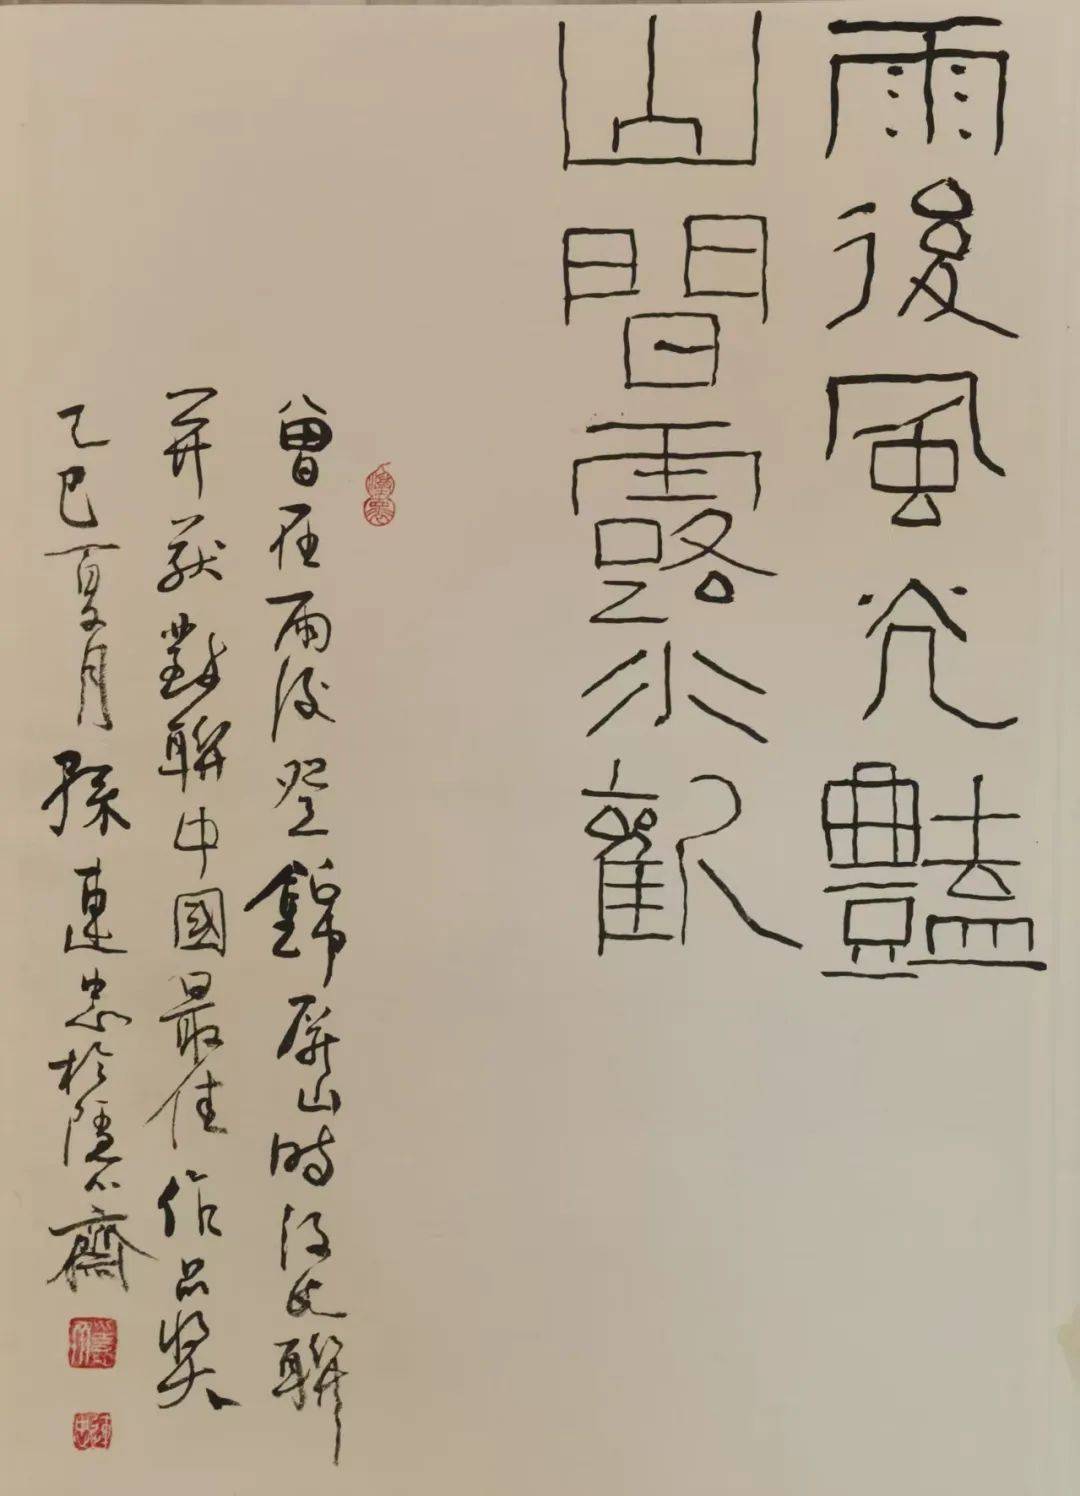 雨後風光豔
山間露水歡
曾在雨後登錦屏山時得此聯
并获對聯中國最佳作品奖
乙巳夏月孫連忠於隱心齋